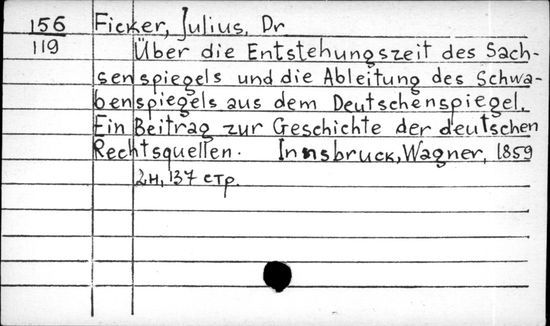 156 Ficker, Julius, Dr
119 Über die Entstehungszeit des Sach-
senspiegels und die Ableitung des Schwa-
benspiegels aus dem Deutschenspiegel.
Ein Beitrag zur Geschichte der deutschen
Rechtsquellen. Innsbruck, Wagner, 1859
2н, 137 стр.